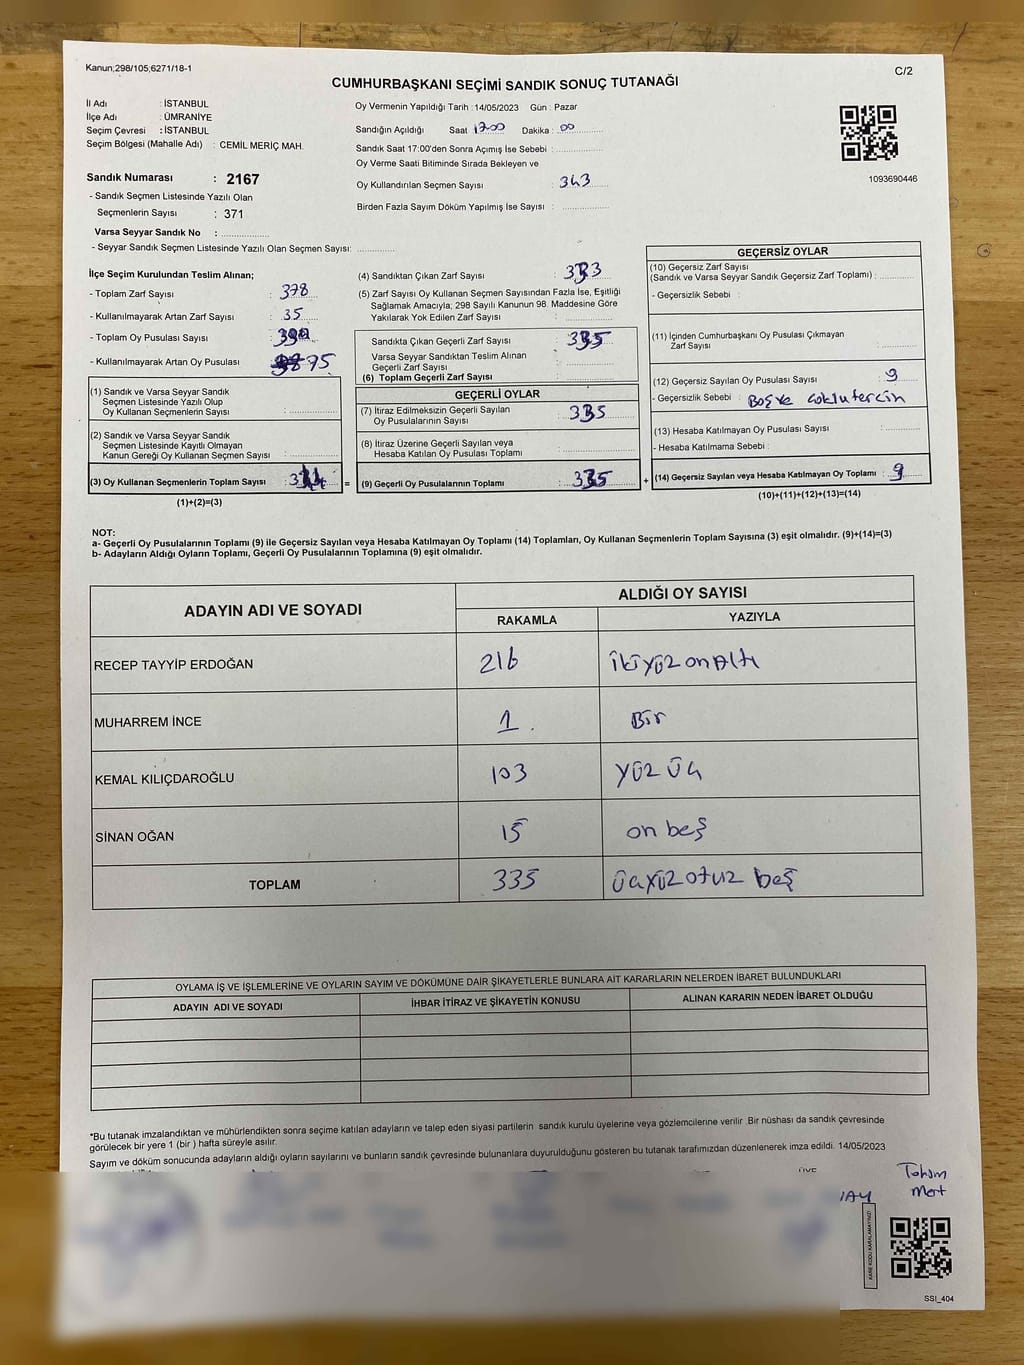 Kanun;298/105,6271/18-1
C/2
CUMHURBAŞKANI SEÇİMİ SANDIK SONUÇ TUTANAĞI
İl Adı : İSTANBUL
İlçe Adı : ÜMRANİYE
Seçim Çevresi : İSTANBUL
Seçim Bölgesi (Mahalle Adı) : CEMİL MERİÇ MAH.
Sandık Numarası : 2167
- Sandık Seçmen Listesinde Yazılı Olan
Seçmenlerin Sayısı : 371
Varsa Seyyar Sandık No :
- Seyyar Sandık Seçmen Listesinde Yazılı Olan Seçmen Sayısı:
Oy Vermenin Yapıldığı Tarih : 14/05/2023 Gün : Pazar
Sandığın Açıldığı Saat 17:00 Dakika : 00
Sandık Saat 17:00'den Sonra Açımış İse Sebebi :
Oy Verme Saati Bitiminde Sırada Bekleyen ve
Oy Kullandırılan Seçmen Sayısı : 343
Birden Fazla Sayım Döküm Yapılmış İse Sayısı :
1093690446
İlçe Seçim Kurulundan Teslim Alınan;
- Toplam Zarf Sayısı : 378
- Kullanılmayarak Artan Zarf Sayısı : 35
- Toplam Oy Pusulası Sayısı :
- Kullanılmayarak Artan Oy Pusulası : 75
(1) Sandık ve Varsa Seyyar Sandık
Seçmen Listesinde Yazılı Olup
Oy Kullanan Seçmenlerin Sayısı :
(2) Sandık ve Varsa Seyyar Sandık
Seçmen Listesinde Kayıtlı Olmayan
Kanun Gereği Oy Kullanan Seçmen Sayısı :
(3) Oy Kullanan Seçmenlerin Toplam Sayısı : =
(1)+(2)=(3)
(4) Sandıktan Çıkan Zarf Sayısı : 333
(5) Zarf Sayısı Oy Kullanan Seçmen Sayısından Fazla İse, Eşitliği
Sağlamak Amacıyla; 298 Sayılı Kanunun 98. Maddesine Göre
Yakılarak Yok Edilen Zarf Sayısı :
Sandıkta Çıkan Geçerli Zarf Sayısı : 335
Varsa Seyyar Sandıktan Teslim Alınan
Geçerli Zarf Sayısı :
(6) Toplam Geçerli Zarf Sayısı :
GEÇERLİ OYLAR
(7) İtiraz Edilmeksizin Geçerli Sayılan
Oy Pusulalarının Sayısı : 335
(8) İtiraz Üzerine Geçerli Sayılan veya
Hesaba Katılan Oy Pusulası Toplamı :
(9) Geçerli Oy Pusulalarının Toplamı : 335 +
GEÇERSİZ OYLAR
(10) Geçersiz Zarf Sayısı
(Sandık ve Varsa Seyyar Sandık Geçersiz Zarf Toplamı) :
- Geçersizlik Sebebi :
(11) İçinden Cumhurbaşkanı Oy Pusulası Çıkmayan
Zarf Sayısı :
(12) Geçersiz Sayılan Oy Pusulası Sayısı : 9
- Geçersizlik Sebebi : Boş ve çoklu tercih
(13) Hesaba Katılmayan Oy Pusulası Sayısı :
- Hesaba Katılmama Sebebi :
(14) Geçersiz Sayılan veya Hesaba Katılmayan Oy Toplamı : 9
(10)+(11)+(12)+(13)=(14)
NOT:
a- Geçerli Oy Pusulalarının Toplamı (9) ile Geçersiz Sayılan veya Hesaba Katılmayan Oy Toplamı (14) Toplamları, Oy Kullanan Seçmenlerin Toplam Sayısına (3) eşit olmalıdır. (9)+(14)=(3)
b- Adayların Aldığı Oyların Toplamı, Geçerli Oy Pusulalarının Toplamına (9) eşit olmalıdır.
ADAYIN ADI VE SOYADI
ALDIĞI OY SAYISI
RAKAMLA YAZIYLA
RECEP TAYYİP ERDOĞAN 216 iki yüz on altı
MUHARREM İNCE 1 Bir
KEMAL KILIÇDAROĞLU 103 yüz üç
SİNAN OĞAN 15 on beş
TOPLAM 335 üçyüz otuz beş
OYLAMA İŞ VE İŞLEMLERİNE VE OYLARIN SAYIM VE DÖKÜMÜNE DAİR ŞİKAYETLERLE BUNLARA AİT KARARLARIN NELERDEN İBARET BULUNDUKLARI
ADAYIN ADI VE SOYADI İHBAR İTİRAZ VE ŞİKAYETİN KONUSU ALINAN KARARIN NEDEN İBARET OLDUĞU
*Bu tutanak imzalandıktan ve mühürlendikten sonra seçime katılan adayların ve talep eden siyasi partilerin sandık kurulu üyelerine veya gözlemcilerine verilir .Bir nüshası da sandık çevresinde
görülecek bir yere 1 (bir ) hafta süreyle asılır.
Sayım ve döküm sonucunda adayların aldığı oyların sayılarını ve bunların sandık çevresinde bulunanlara duyurulduğunu gösteren bu tutanak tarafımızdan düzenlenerek imza edildi. 14/05/2023
Mert
KARE KODU KARALAMAYINIZ!
SSI_404